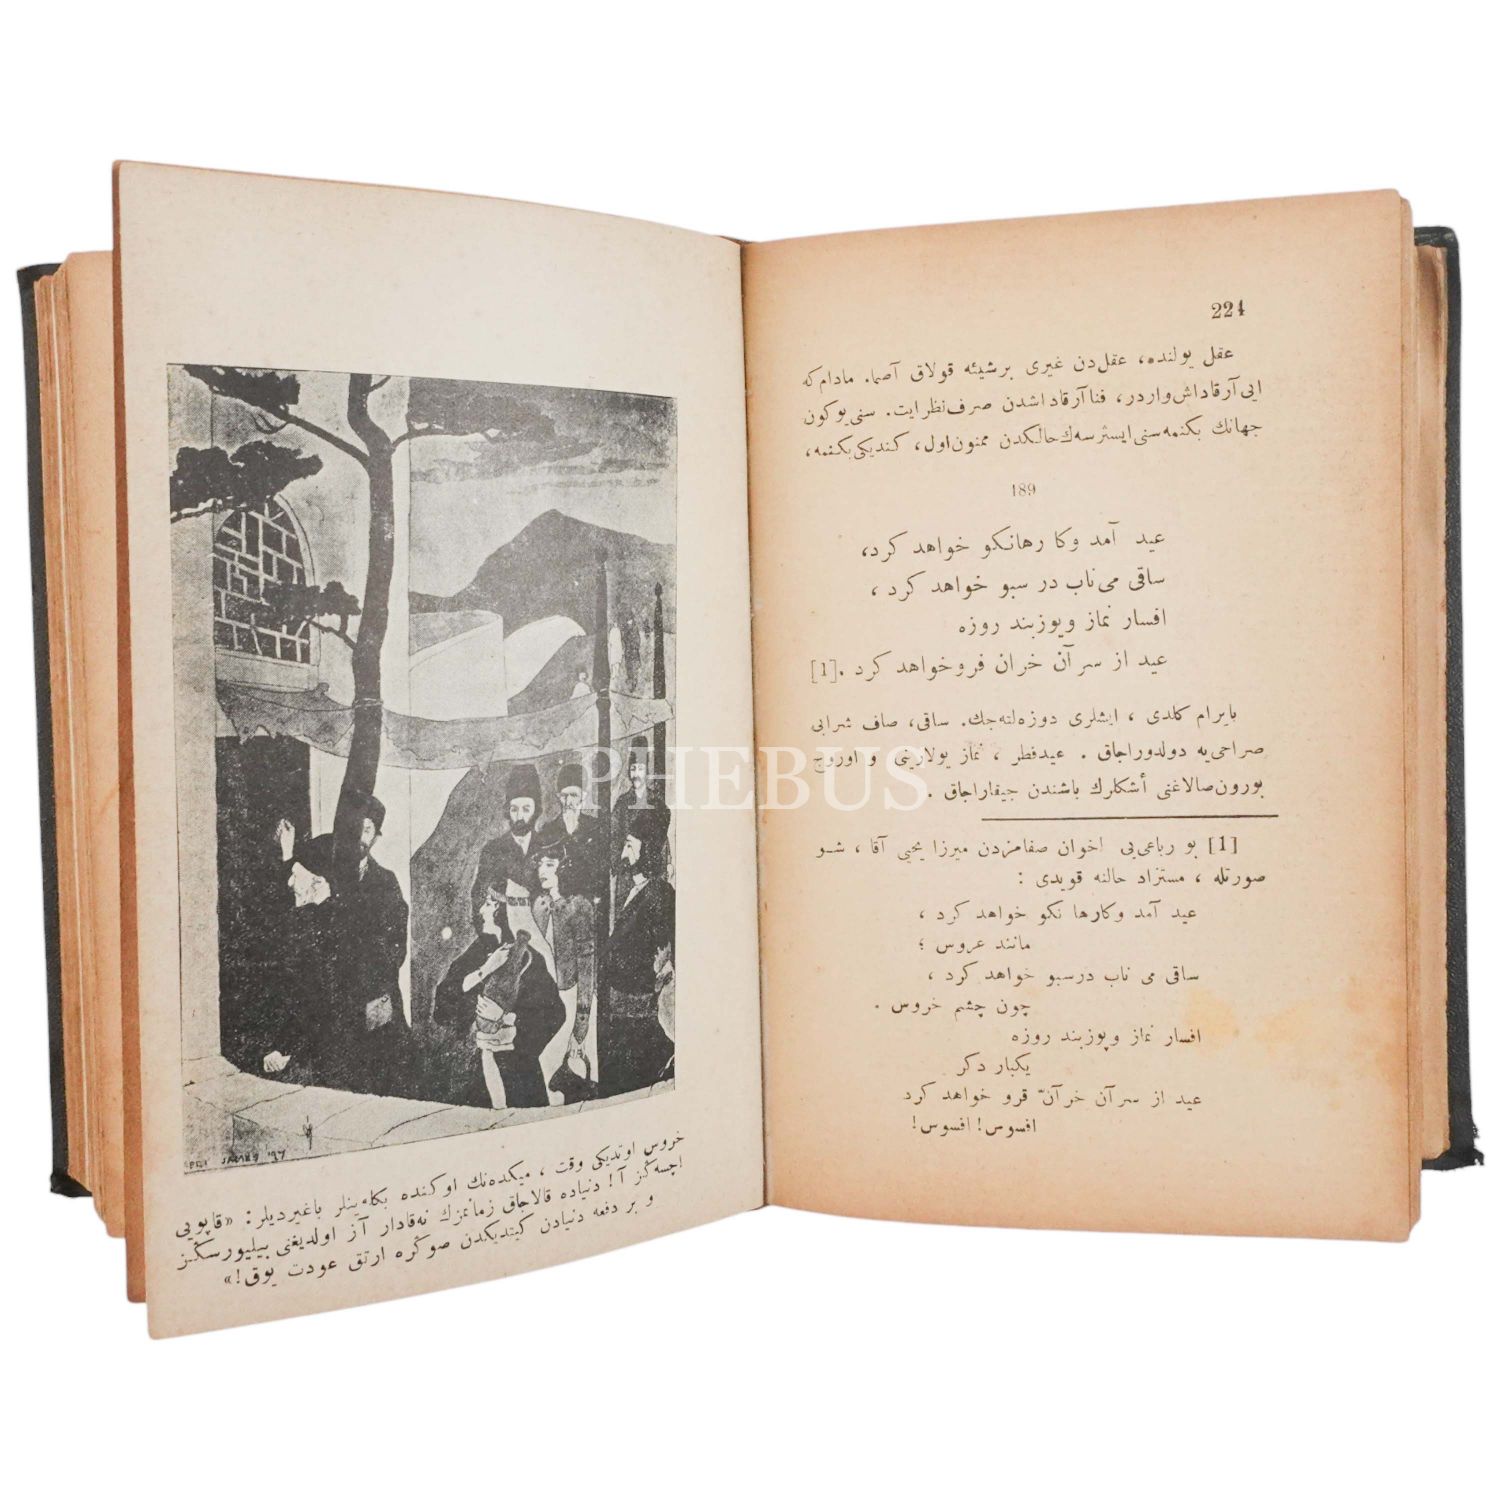 224
عقل یولنده، عقل‌دن غیری برشیئه قولاق آصما. مادام‌که
ایی آرقاداش‌واردر، فنا آرقاداشدن صرف‌نظر ایت. سنی‌بوکون
جهانك بکنمه‌سنی ایسترسه‌ك حالکدن ممنون اول، کندیکی بکنمه،
189
عید آمد وکا رهانکو خواهد کرد،
ساقی می ناب در سبو خواهد کرد،
افسار نماز و پوزبند روزه
عید از سر آن خران فرو خواهد کرد.[1]
بایرام کلدی، ایشلری دوزه‌لته‌جك. ساقی، صاف شرابی
صراحی‌یه دولدوراجاق. عیدفطر، نماز یولارینی و اوروج
بورون‌صالاغنی أشکلرك باشندن چیقاراجاق.
[1] بو رباعی‌یی اخوان صفامزدن میرزا یحیی آقا، شو
صورتله، مستزاد حالنه قویدی:
عید آمد وکارها نکو خواهد کرد،
مانند عروس؛
ساقی می ناب درسبو خواهد کرد،
چون چشم خروس.
افسار نماز و پوزبند روزه
یکبار دکر
عید از سر آن خر آنّ فرو خواهد کرد
افسوس! افسوس!
JAMES '97
خروس اوتدیکی وقت، میکده‌نك اوکنده بکله‌ینلر باغیردیلر: «قاپویی
آچسه‌ڭز آ! دنیاده قالاجاق زمانمزك نه‌قادار آز اولدیغنی بیلیورسڭز
و بر دفعه دنیادن کیتدیکدن صوڭره ارتق عودت یوق!»
PHEBUS